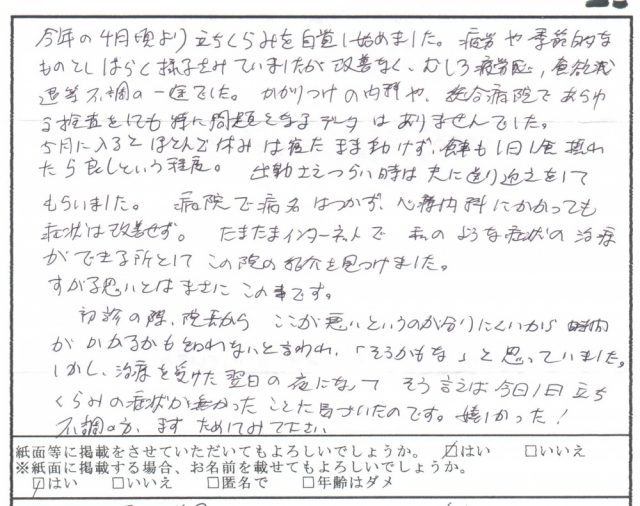 今年の4月頃より立ちくらみを自覚し始めました。疲労や季節的な
ものとしばらく様子をみていましたが改善なく、むしろ疲労感、食欲減
退等不調の一途でした。かかりつけの内科や、総合病院であらゆ
る検査をしても特に問題となるデータはありませんでした。
5月に入るとほとんど休みは寝たまま動けず、食事も1日1食摂れ
たら良しという程度。出勤さえつらい時は夫に送り迎えをして
もらいました。病院で病名はつかず、心療内科にかかっても
症状は改善せず。たまたまインターネットで私のような症状の治療
ができる所としてこの院の紹介を見つけました。
すがる思いとはまさにこの事です。
初診の際、院長からここが悪いというのが分りにくいから時間
がかかるかもしれないと言われ、「そうかもな」と思っていました。
しかし、治療を受けた翌日の夜になってそう言えば今日1日立ち
くらみの症状が無かったことに気づいたのです。嬉しかった!
不調の方、まずためしてみて下さい
紙面等に掲載をさせていただいてもよろしいでしょうか。 ☑はい □いいえ
※紙面に掲載する場合、お名前を載せてもよろしいでしょうか。
☑はい □いいえ □匿名で □年齢はダメ